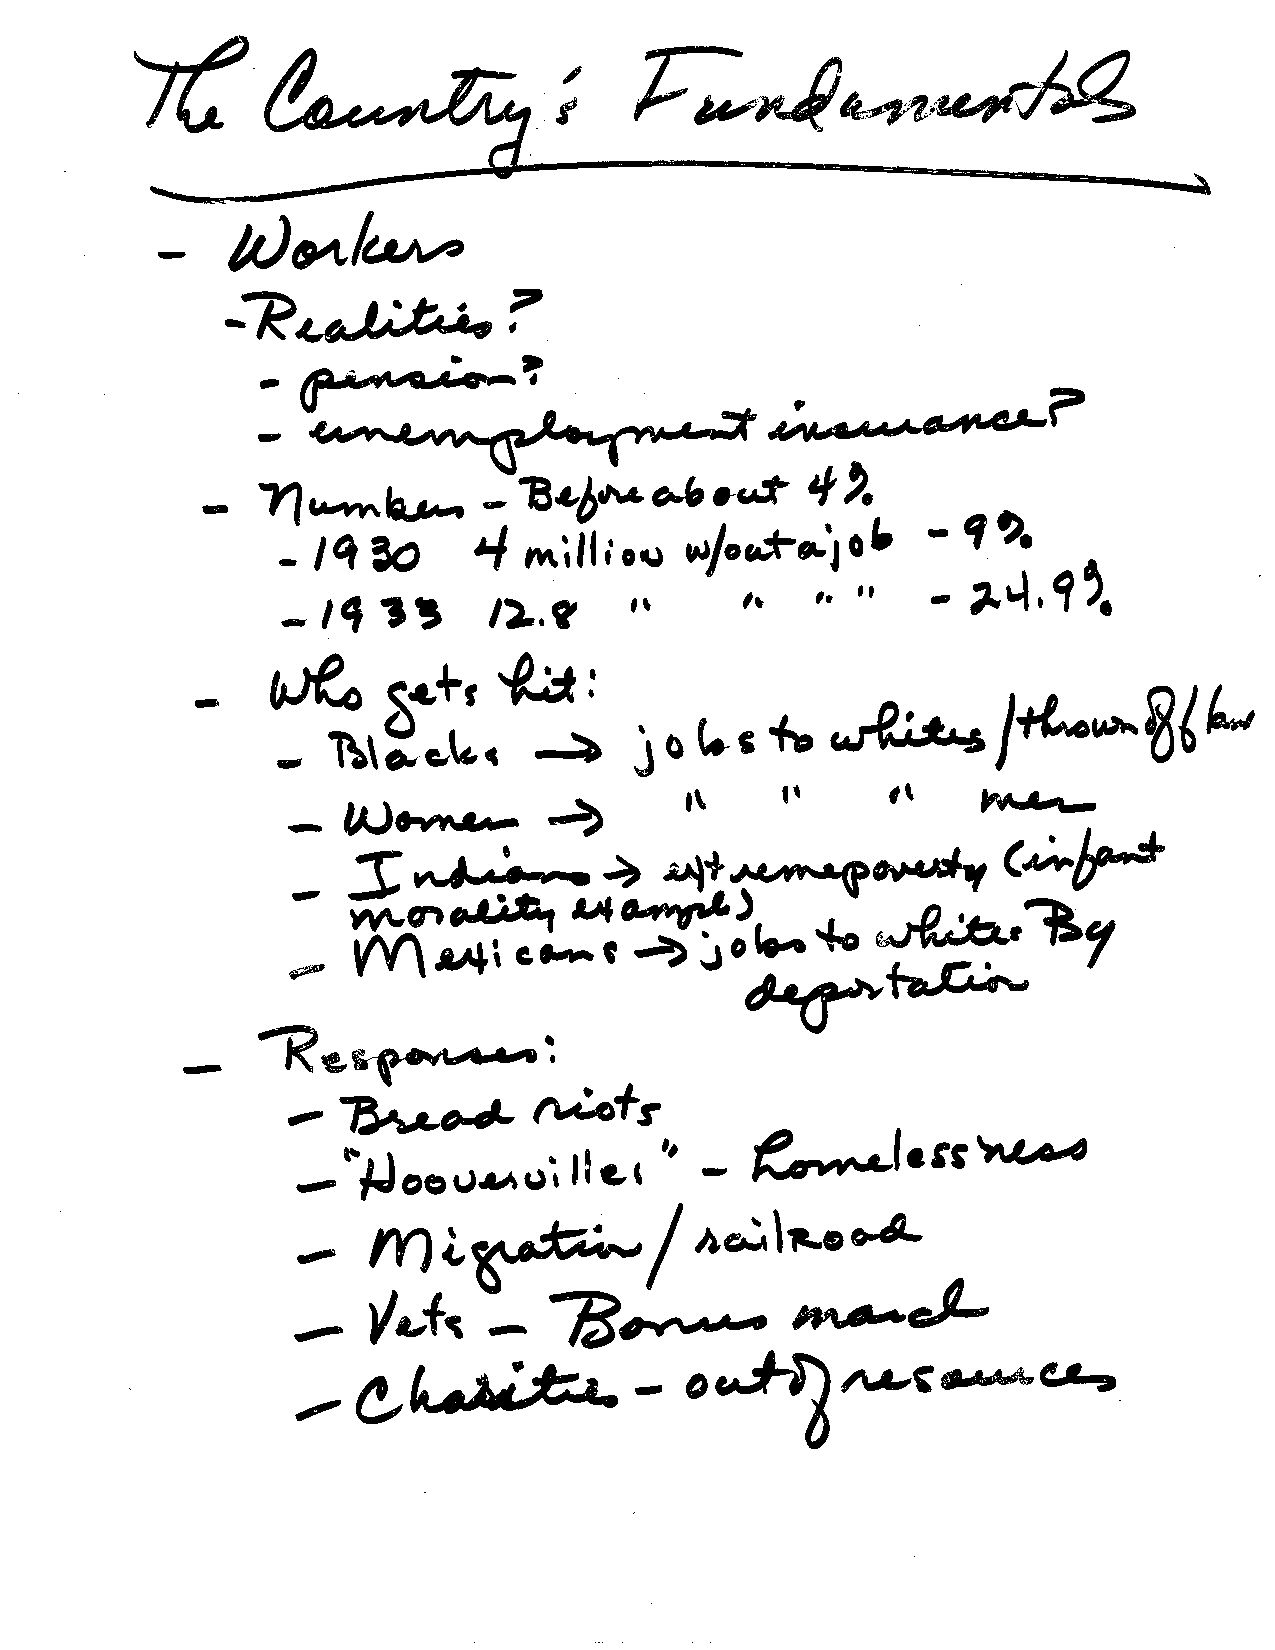 The Country's Fundamentals
- Workers
- Realities?
- pension?
- unemployment insurance?
- Numbers - Before about 4%
- 1930 4 million w/out a job - 9%
- 1933 12.8 " " " " - 24.9%
- Who gets hit:
- Blacks → jobs to whites / thrown off
- Women → " " " men
- Indians → extreme poverty (infant
morality example)
- Mexicans → jobs to whites By
deportation
- Responses:
- Bread riots
- "Hoovervilles" - homelessness
- Migration / railroad
- Vets - Bonus march
- Charities - out of resources